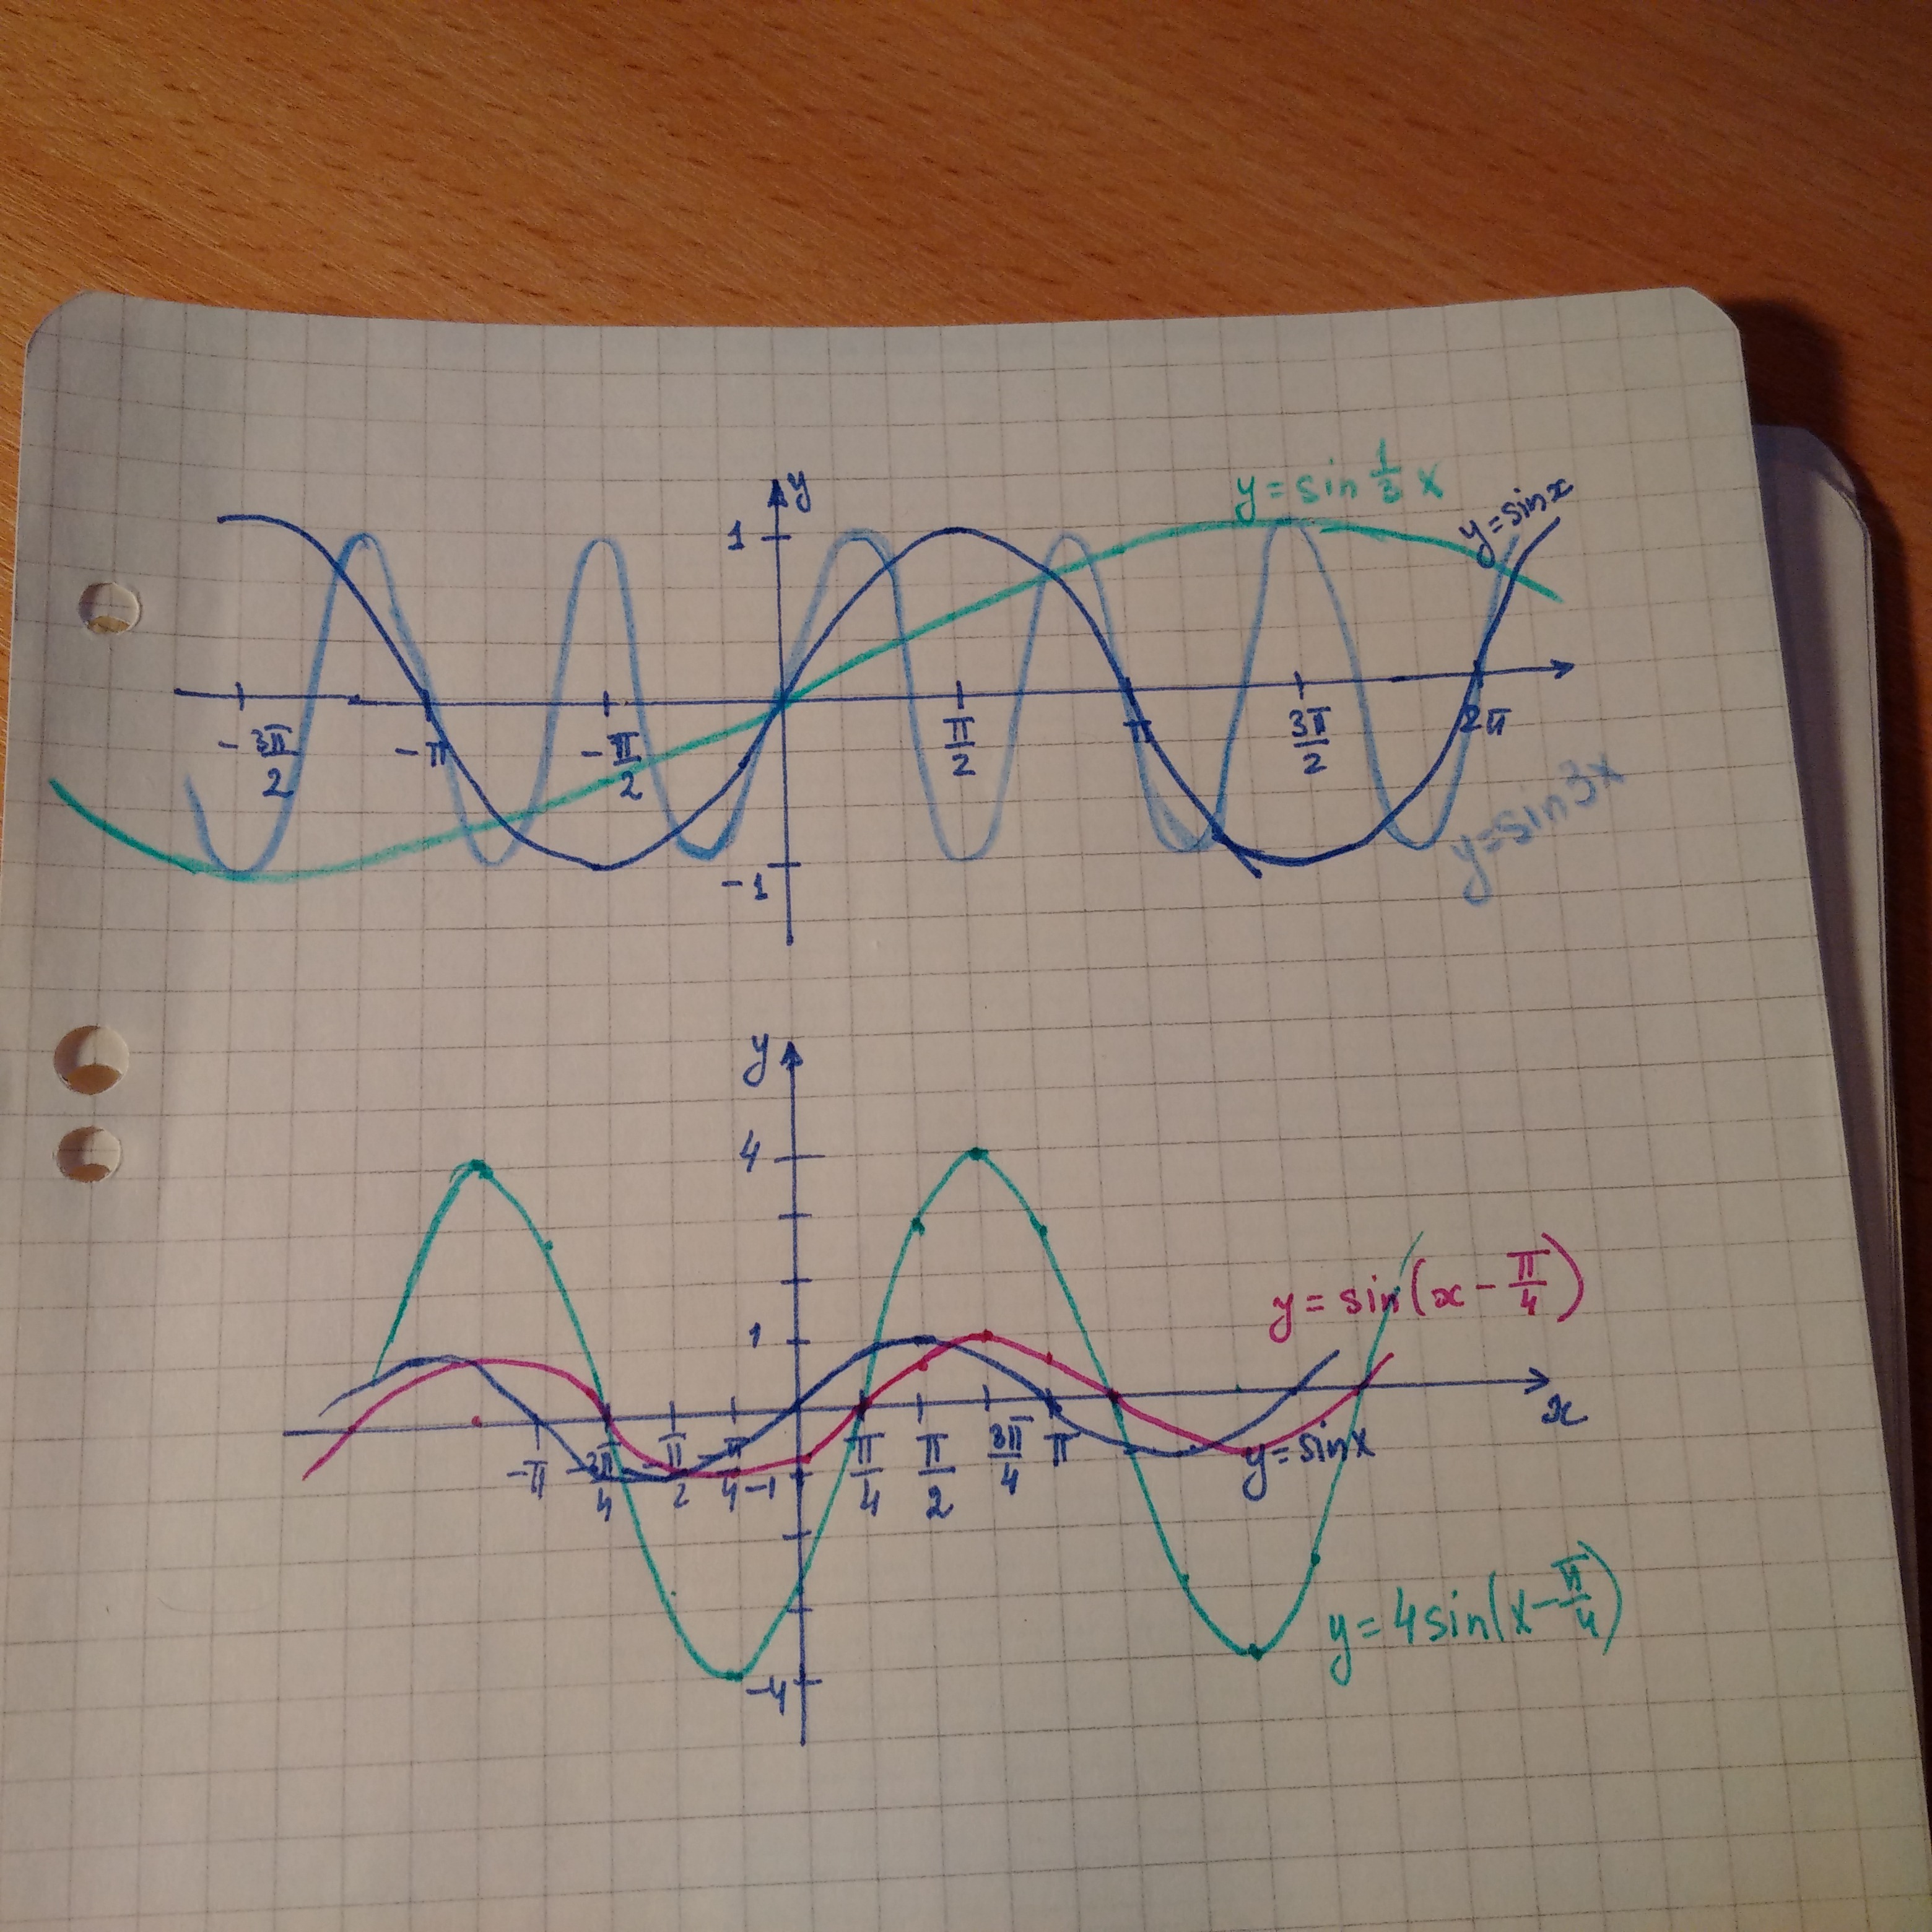 y
y = sin 1/3 x
y = sin x
1
-3π/2 -π -π/2 π/2 π 3π/2 2π
y = sin 3x
-1
y
4
y = sin(x - π/4)
1
x
-π -3π/4 -π/2 -π/4 π/4 π/2 3π/4 π
y = sin x
-1
y = 4 sin(x - π/4)
-4